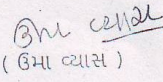 ઉમા વ્યાસ
(ઉમા વ્યાસ)